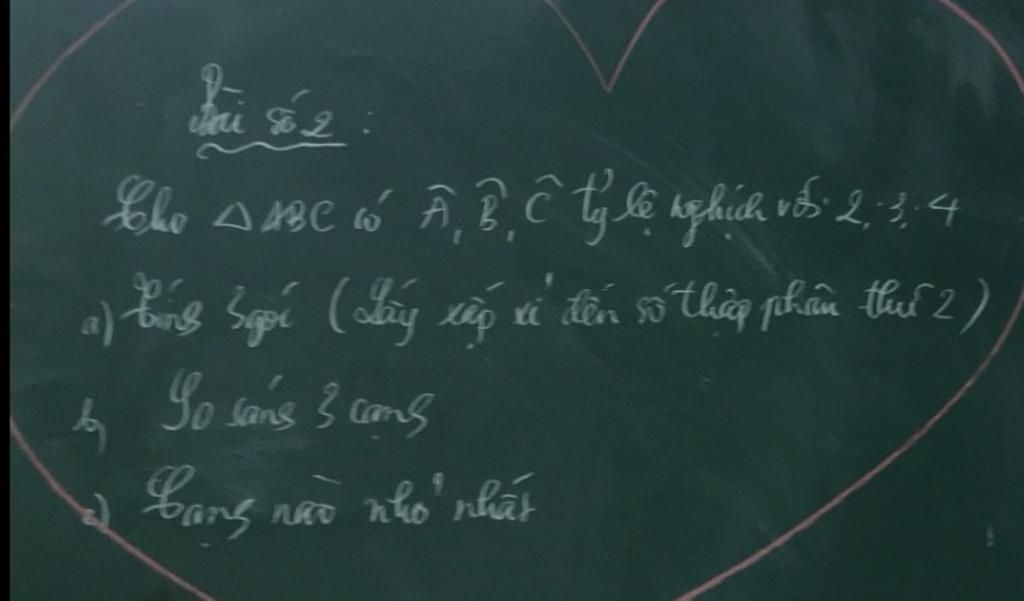 Bài số 2 :
Cho △ ABC có Â, B̂, Ĉ tỷ lệ nghịch với 2, 3, 4
a) Tính 3 góc (Lấy xấp xỉ đến số thập phân thứ 2)
b, So sánh 3 cạnh
c) Cạnh nào nhỏ nhất